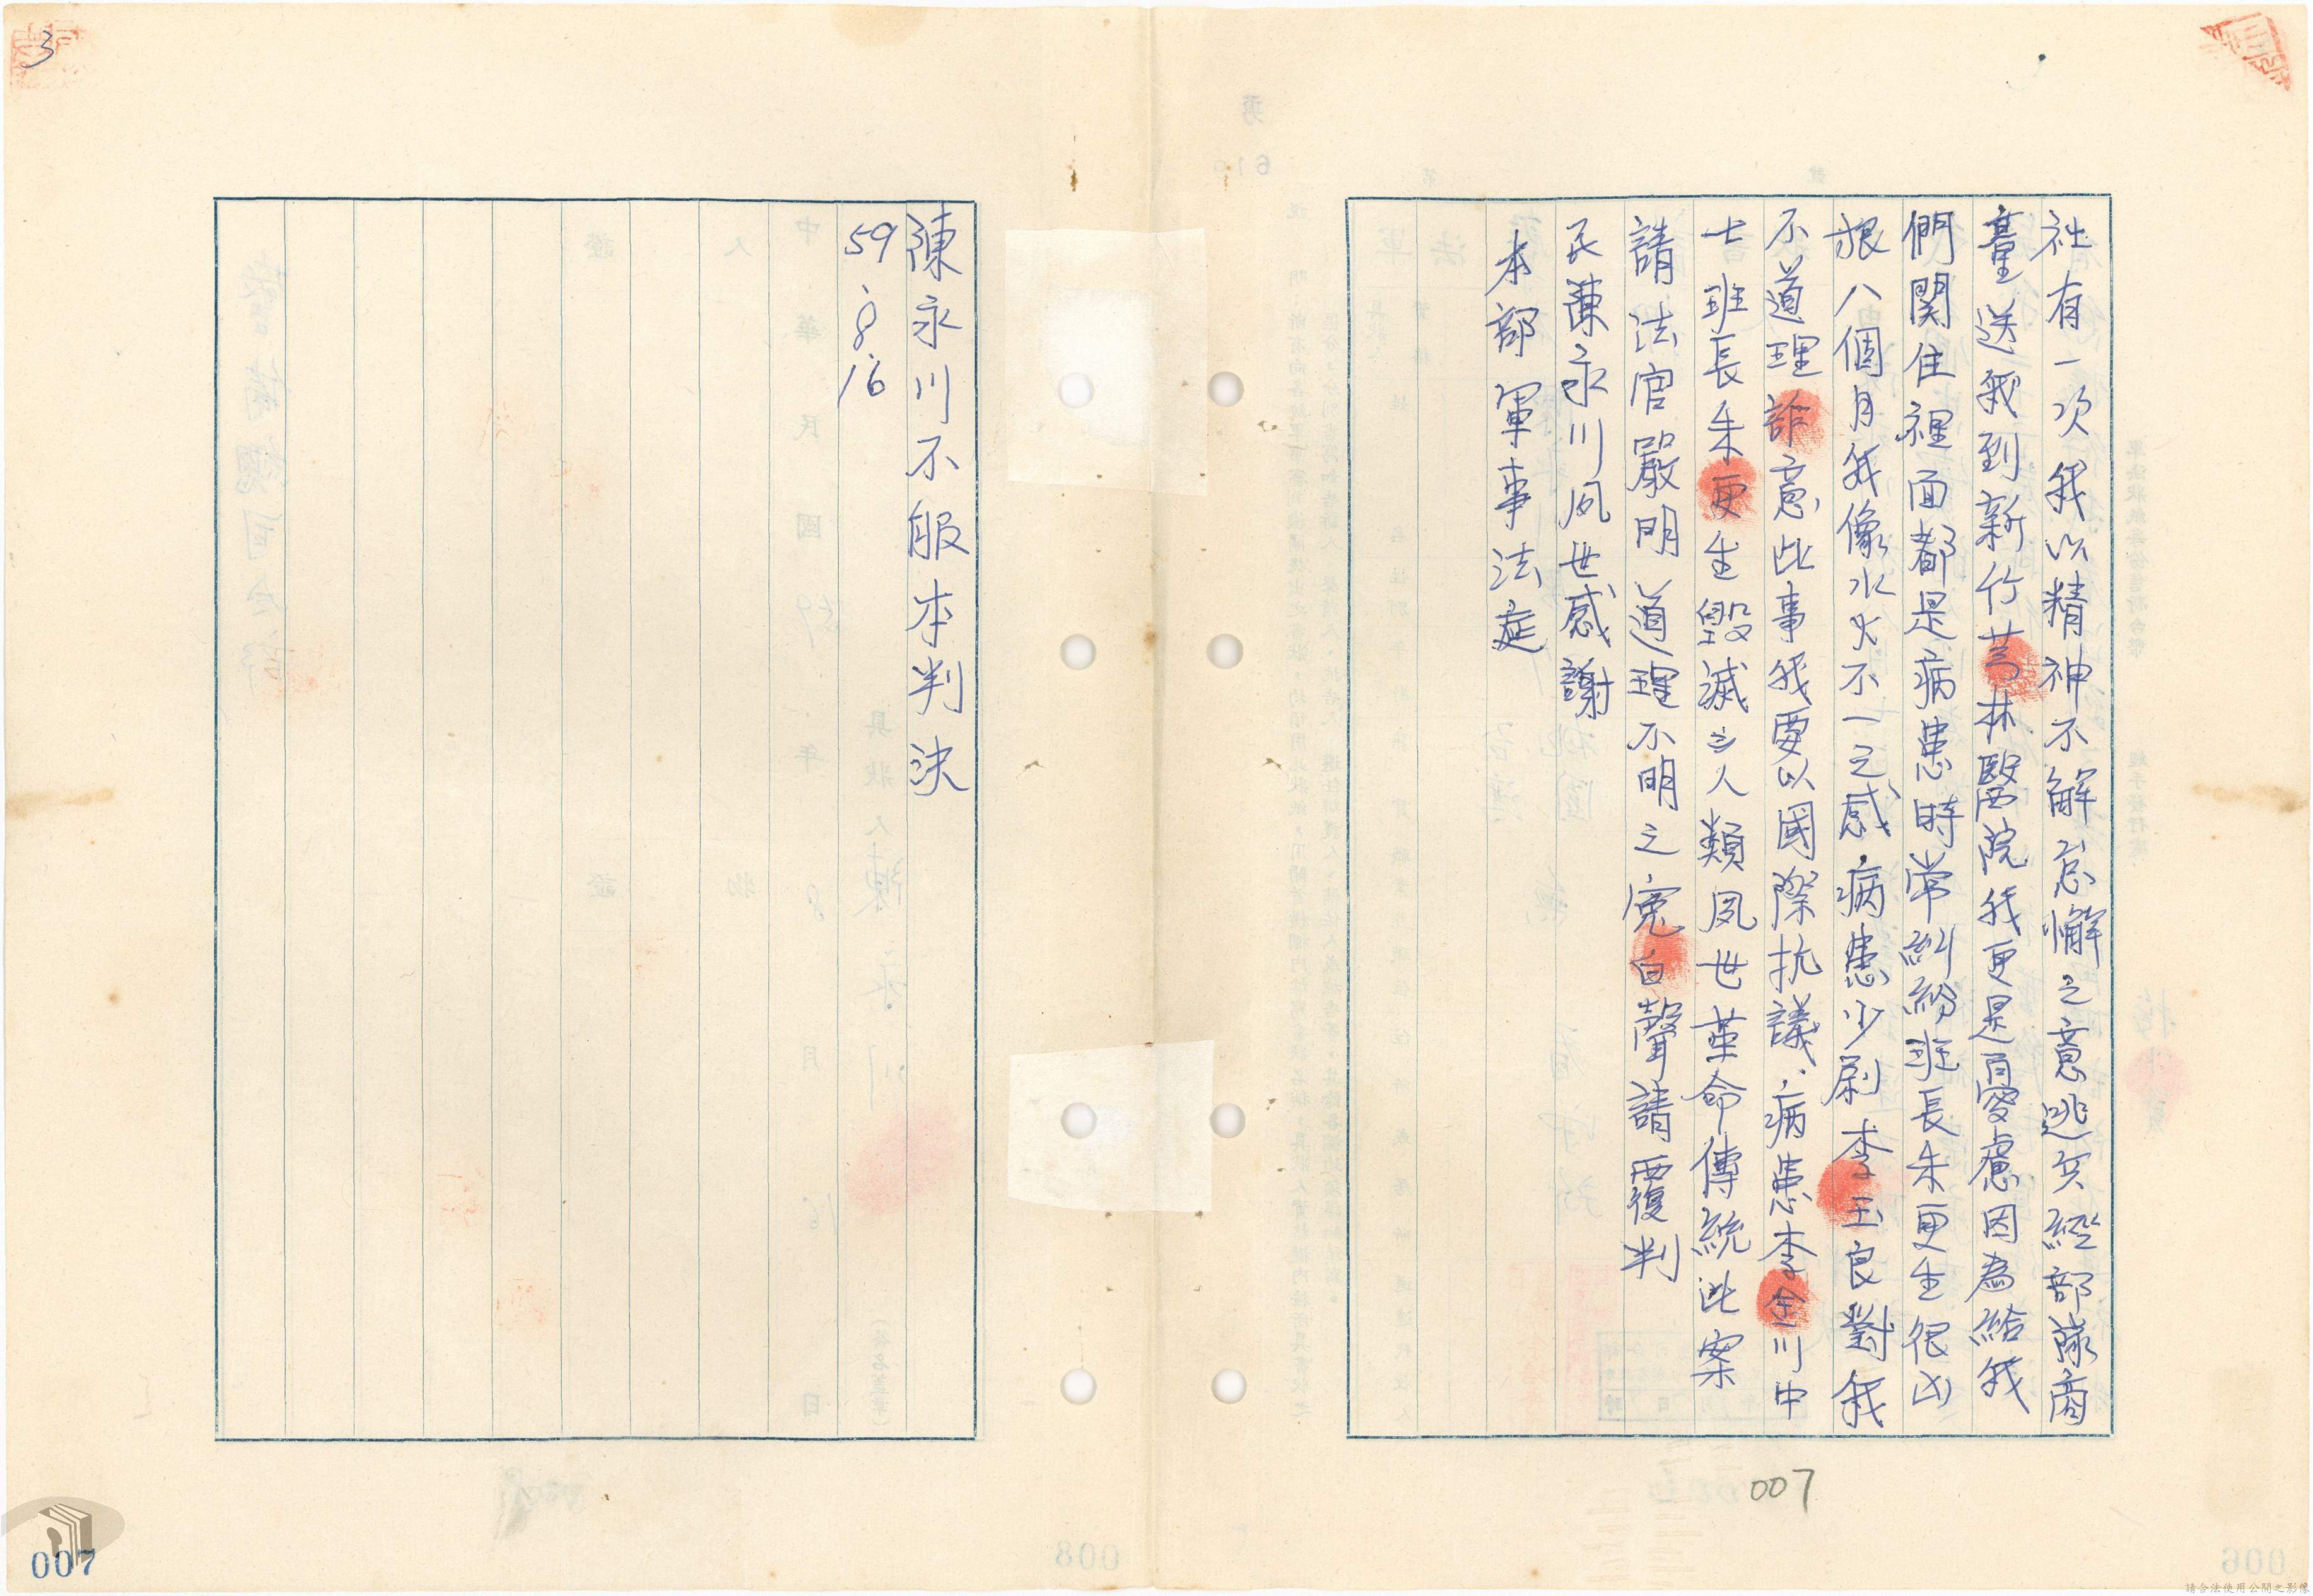 社有一次我以精神不解怠懈之意逃兵經部隊商
臺送我到新竹芎林醫院我更是憂慮因為給我
們関住裡面都是病患時常糾紛班長朱更生很凶
狠八個月我像水火不一之感病患少尉李玉良對我
不道理詐意此事我要以國際抗議病患李金川中
士班長朱更生毀滅之人類夙世革命傳統此案
請法官嚴明道理不明之寃白聲請覆判
民陳永川夙世感謝
本部軍事法庭
陳永川不服本判決
59.8.16
007
3
007
請合法使用公開之影像